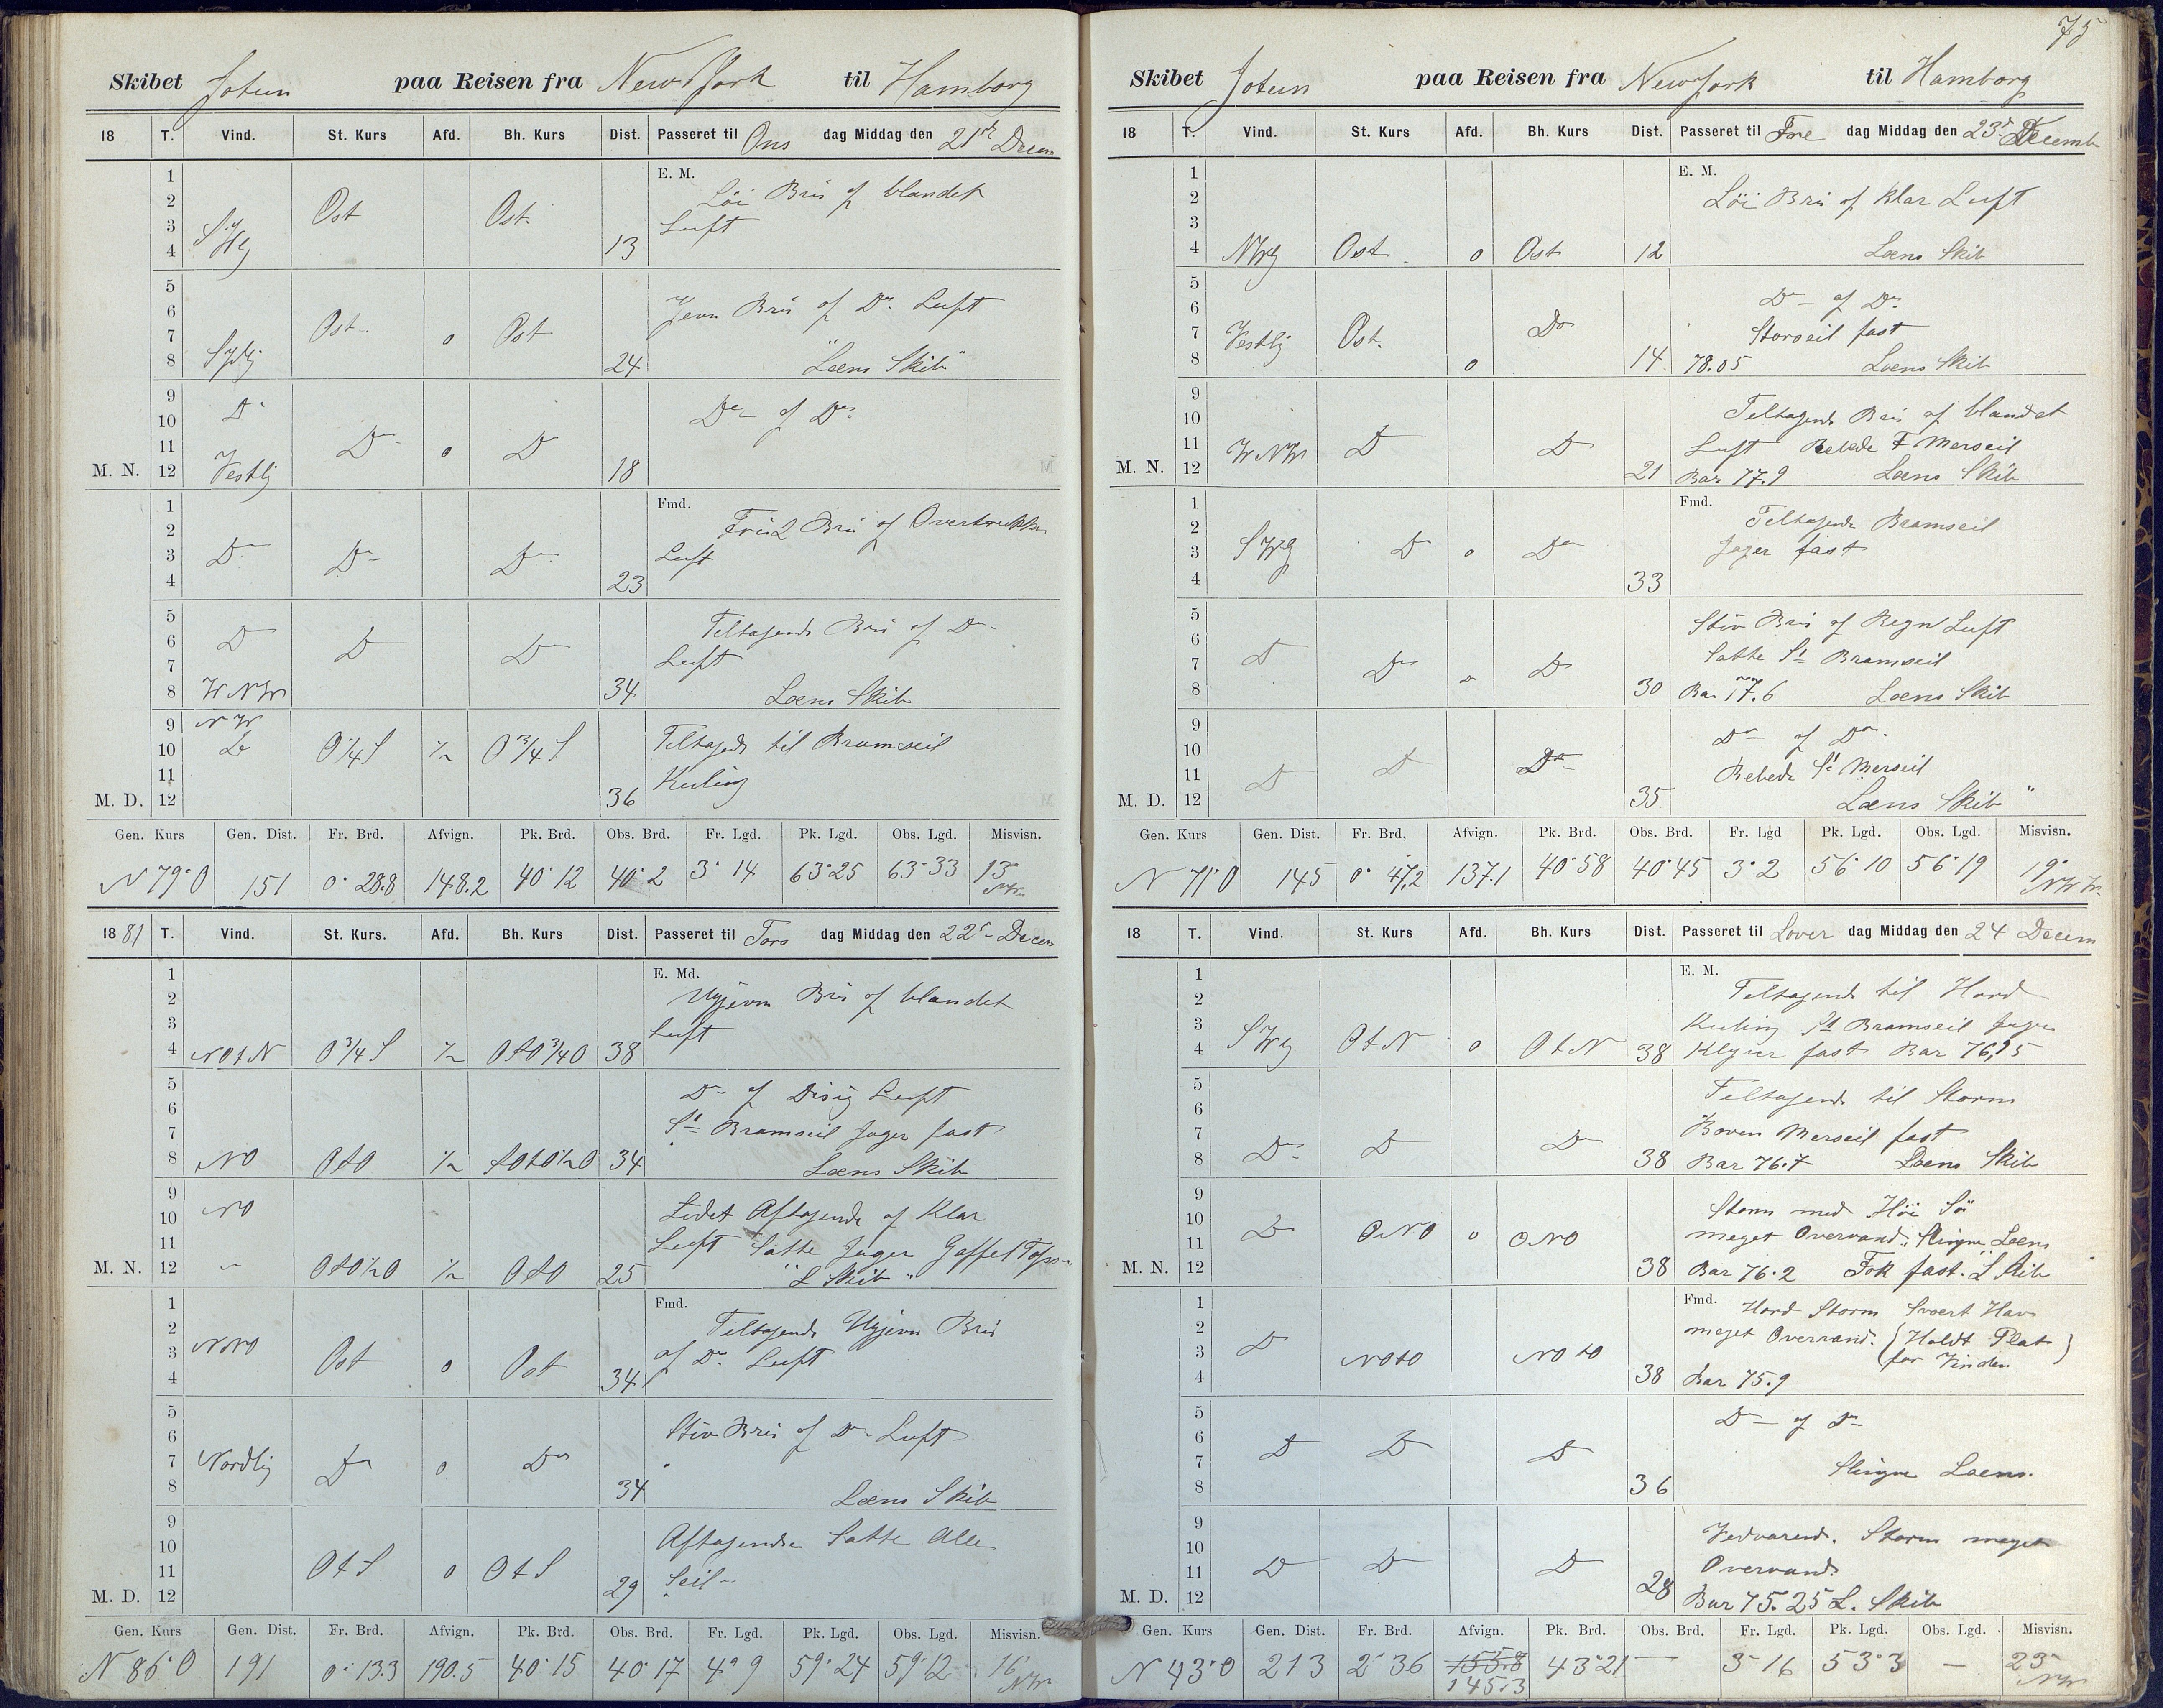 Skibet Jotun paa Reisen fra New York til Hamborg
18 T. Vind. St. Kurs Afd. Bh. Kurs Dist. Passeret til Ons dag Middag den 21de Decem
E. M.
1
2 Löi Bris of blandet
3 Ost Ost Luft
4 13
5
6 Jevn Bris of Do Luft
7 Ost o Ost
8 Sydlig 24 "Læns Skib"
9
10 Do Do of Do
11 Do o Do
M. N. 12 Vestlig 18
Fmd.
1
2 Frisk Bris of Overtrukken
3 Do Do Do Luft
4 23
5
6 Do Do Do Tiltagende Bris of Do
7 Luft
8 WNW 34 Læns Skib
9 NW
10 O 1/4 S 1/2 O 3/4 S Tiltagende til Bramseil
11 Kuling
M. D. 12 36
Gen. Kurs Gen. Dist. Fr. Brd. Afvign. Pk. Brd. Obs. Brd. Fr. Lgd. Pk. Lgd. Obs. Lgd. Misvisn.
N 79° O 151 0° 28.8 148.2 40° 12 40° 2 3° 14 63° 25 63° 33 13°
1881 T. Vind. St. Kurs. Afd. Bh. Kurs Dist. Passeret til Tors dag Middag den 22de Decem
E. Md.
1
2 Ugjevn Bris of blandet
3 Luft
4 NOtN O 3/4 S 1/2 OtO 3/4 O 38
5
6 Do of Disig Luft
7 St Bramseil Jager fast
8 NO OtO 1/2 tOtO 1/2 O 34 Læns Skib
9 NO
10 Lidet Aftagende of Klar
11 Luft Satte Jager Gaffel Topse
M. N. 12 OtO 1/2 O 1/2 OtO 25 "L Skib"
Fmd.
1
2 NNO Tiltagende Ugjevn Bris
3 Ost o Ost of Do Luft
4 34
5
6 Stiv Bris of Do Luft
7 Nordlig Do o Do
8 34 Læns Skib
9
10 Aftagende Satte Alle
11 OtS o OtS Seil
M. D. 12 29
Gen. Kurs Gen. Dist. Fr. Brd. Afvign. Pk. Brd. Obs. Brd. Fr. Lgd. Pk. Lgd. Obs. Lgd. Misvisn.
N 86° O 191 0° 13.3 190.5 40° 15 40° 17 4° 9 59° 24 59° 12 16° NW
75
Skibet Jotun paa Reisen fra New York til Hamborg
18 T. Vind. St. Kurs Afd. Bh. Kurs Dist. Passeret til Fre dag Middag den 23de Decemb
E. M.
1
2 Löi Bris of Klar Luft
3
4 NWlig Ost o Ost 12 Læns Skib
5
6 Do of Do
7 Vestlig Ost Do Storseil fast
8 o 14 78.05 Læns Skib
9
10 Tiltagende Bris of blandet
11 WNW Do Do Luft Rebede F Merseil
M. N. 12 21 Bar 77.9 Læns Skib
Fmd.
1
2 Tiltagende Bramseil
3 SWlig Do o Do Jager fast
4 33
5
6 Stiv Bris of Regn Luft
7 Do Do o Do Satte St Bramseil
8 30 Bar 77.6 Læns Skib
9
10 Do of Do
11 Do Do Do Rebede St Merseil
M. D. 12 35 Læns Skib "
Gen. Kurs Gen. Dist. Fr. Brd, Afvign. Pk. Brd. Obs. Brd. Fr. Lgd Pk. Lgd. Obs. Lgd. Misvisn.
N 71° O 145 0° 47,2 137.1 40° 58 40° 45 3° 2 56° 10 56° 19 19°
18 T. Vind. St. Kurs Afd. Bh. Kurs Dist. Passeret til Löver dag Middag den 24 Decem
E. M.
1
2 Tiltagende til Hard
3 Kuling St Bramseil Jager
4 SWlig OtN o OtN 38 Klyver fast Bar 76,95
5
6 Tiltagende til Storm
7 Boven Merseil fast
8 Do Do Do 38 Bar 76.7 Læns Skib
9
10 Storm med Höi Sö
11 Do ONO o ONO meget Overvand. Slingre Læns
M. N. 12 38 Bar 76.2 Fok fast. L Skib
Fmd.
1 Hard Storm Svært Hav
2 meget Overvand. (Holdt Plat
3 Do NOtO NOtO for Vinden)
4 38 Bar 75.9
5
6 Do of Do
7 Do Do Do
8 36 Slingre Læns.
9
10 Vedvarende Storm meget
11 Do Do Do Overvand
M. D. 12 28 Bar 75.25 L. Skib
Gen. Kurs Gen. Dist. Fr. Brd. Afvign. Pk. Brd. Obs. Brd. Fr. Lgd. Pk. Lgd. Obs. Lgd. Misvisn.
N 43° O 213 2° 36 155.8 43° 21 — 3° 16 53° 3 — 23° NW
145.3